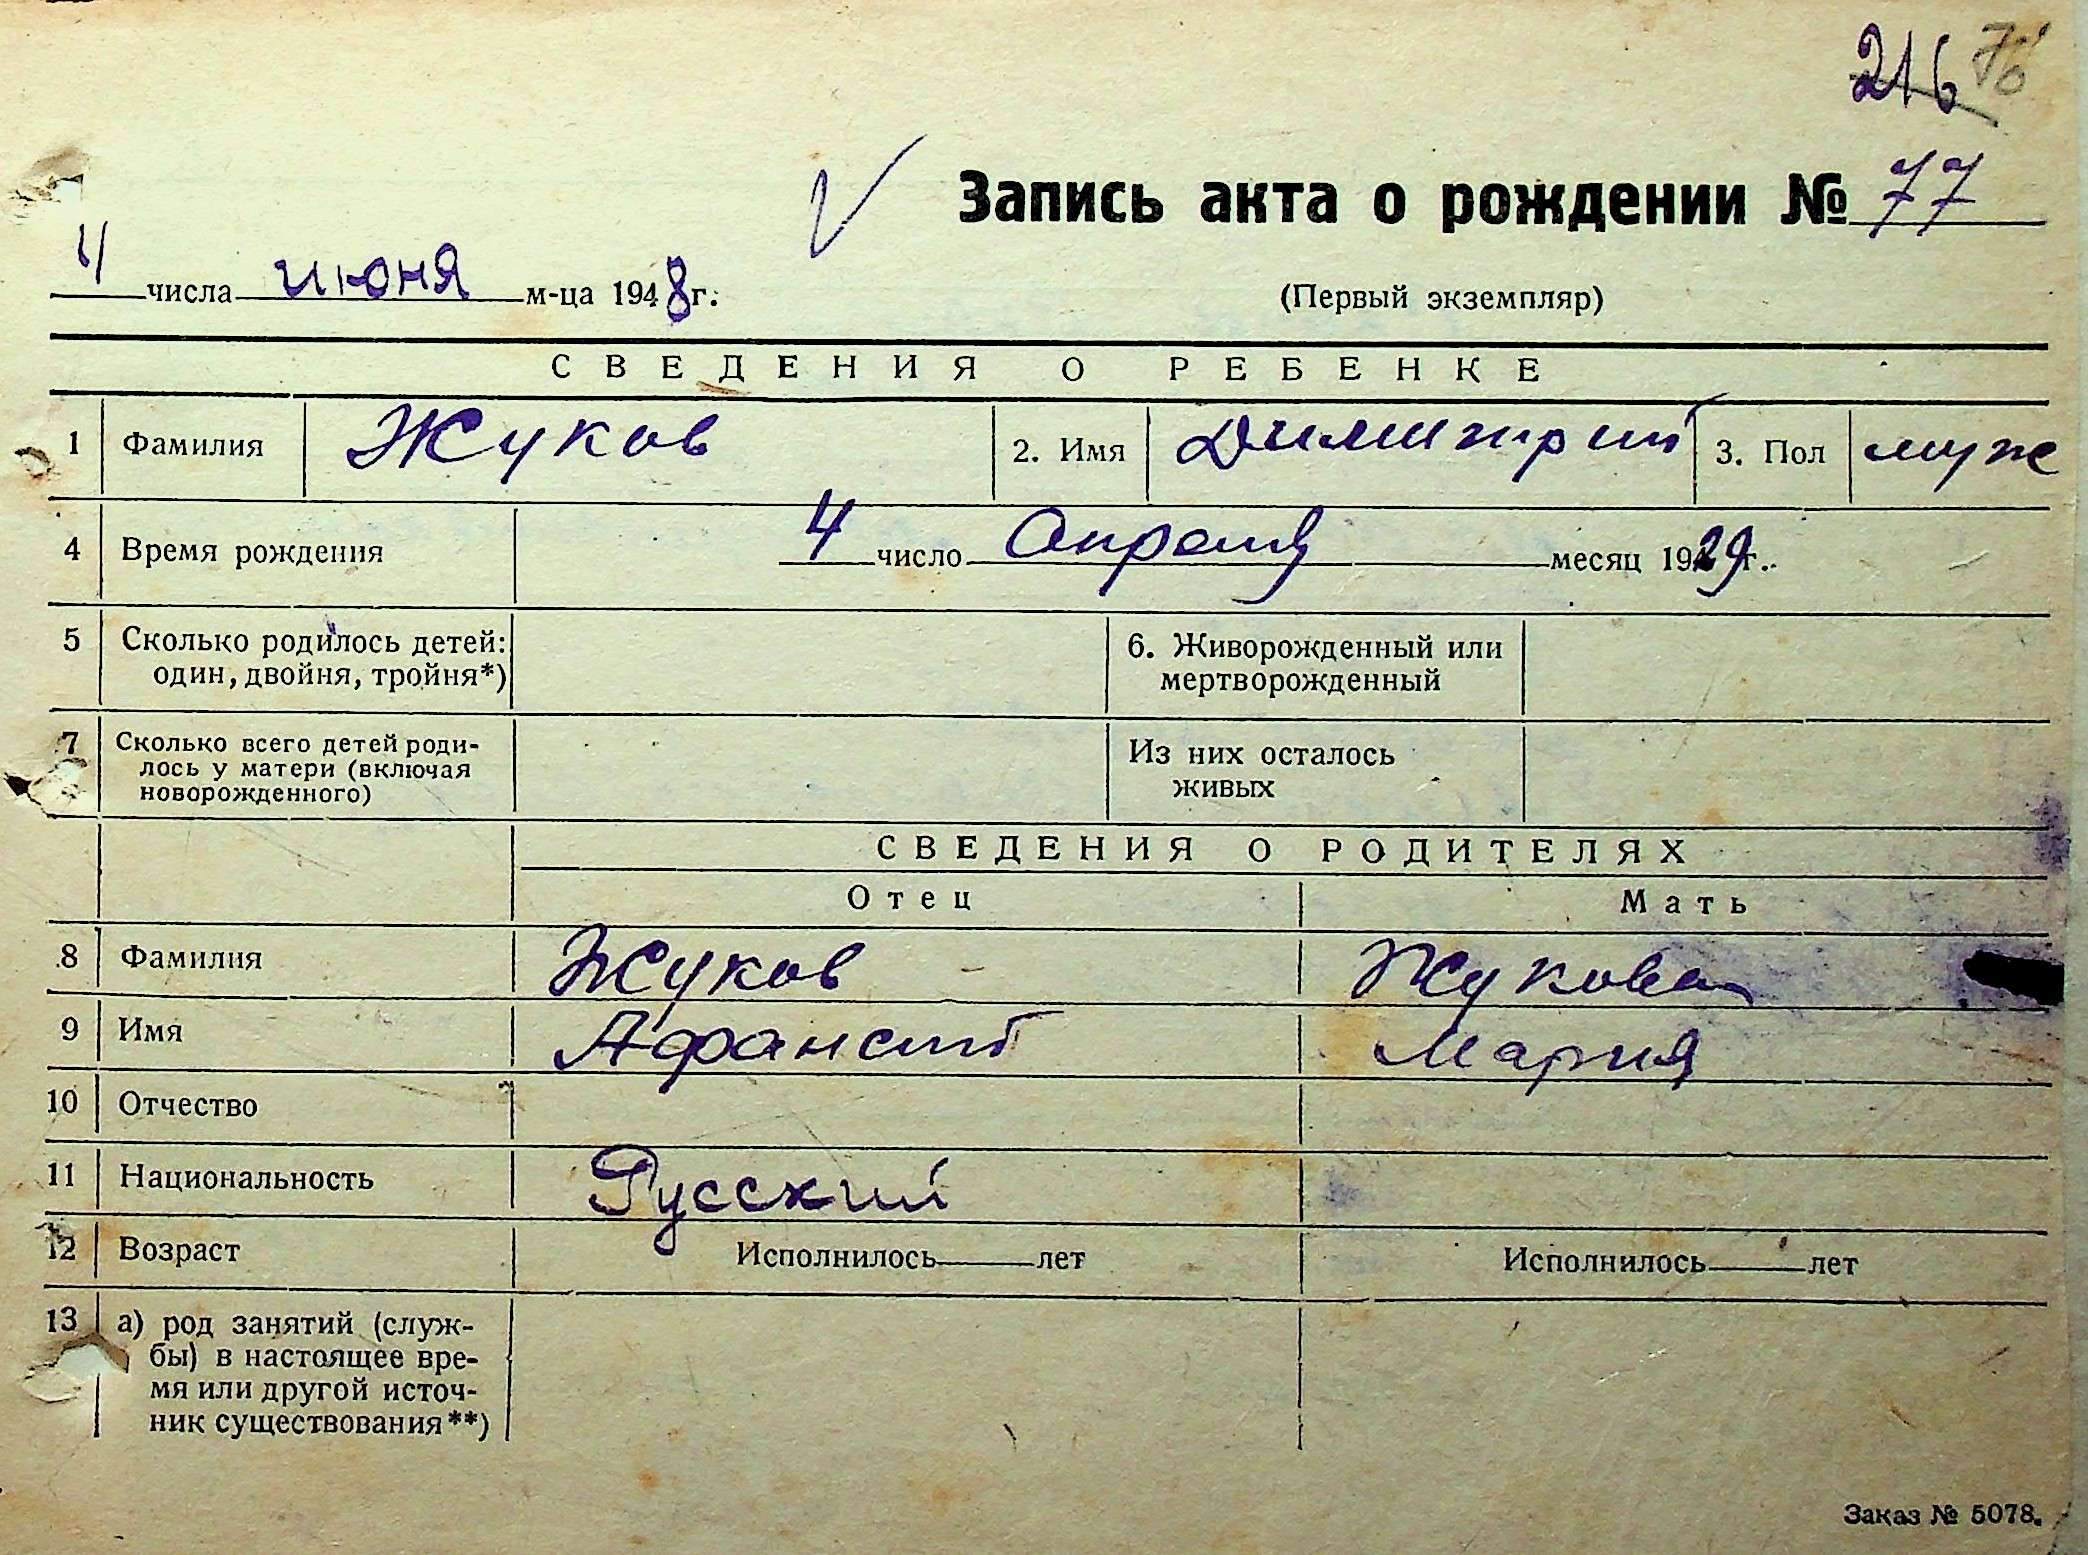 216 76
Запись акта о рождении № 77
4 числа июня м-ца 1948 г.
(Первый экземпляр)
СВЕДЕНИЯ О РЕБЕНКЕ
1 Фамилия Жуков 2. Имя Димитрий 3. Пол муж
4 Время рождения 4 число Апреля месяц 1929 г.
5 Сколько родилось детей: 6. Живорожденный или
один, двойня, тройня*) мертворожденный
7 Сколько всего детей роди- Из них осталось
лось у матери (включая живых
новорожденного)
СВЕДЕНИЯ О РОДИТЕЛЯХ
Отец Мать
8 Фамилия Жуков Жукова
9 Имя Афансий Мария
10 Отчество
11 Национальность Русский
12 Возраст Исполнилось лет Исполнилось лет
13 а) род занятий (служ-
бы) в настоящее вре-
мя или другой источ-
ник существования**)
Заказ № 5078.